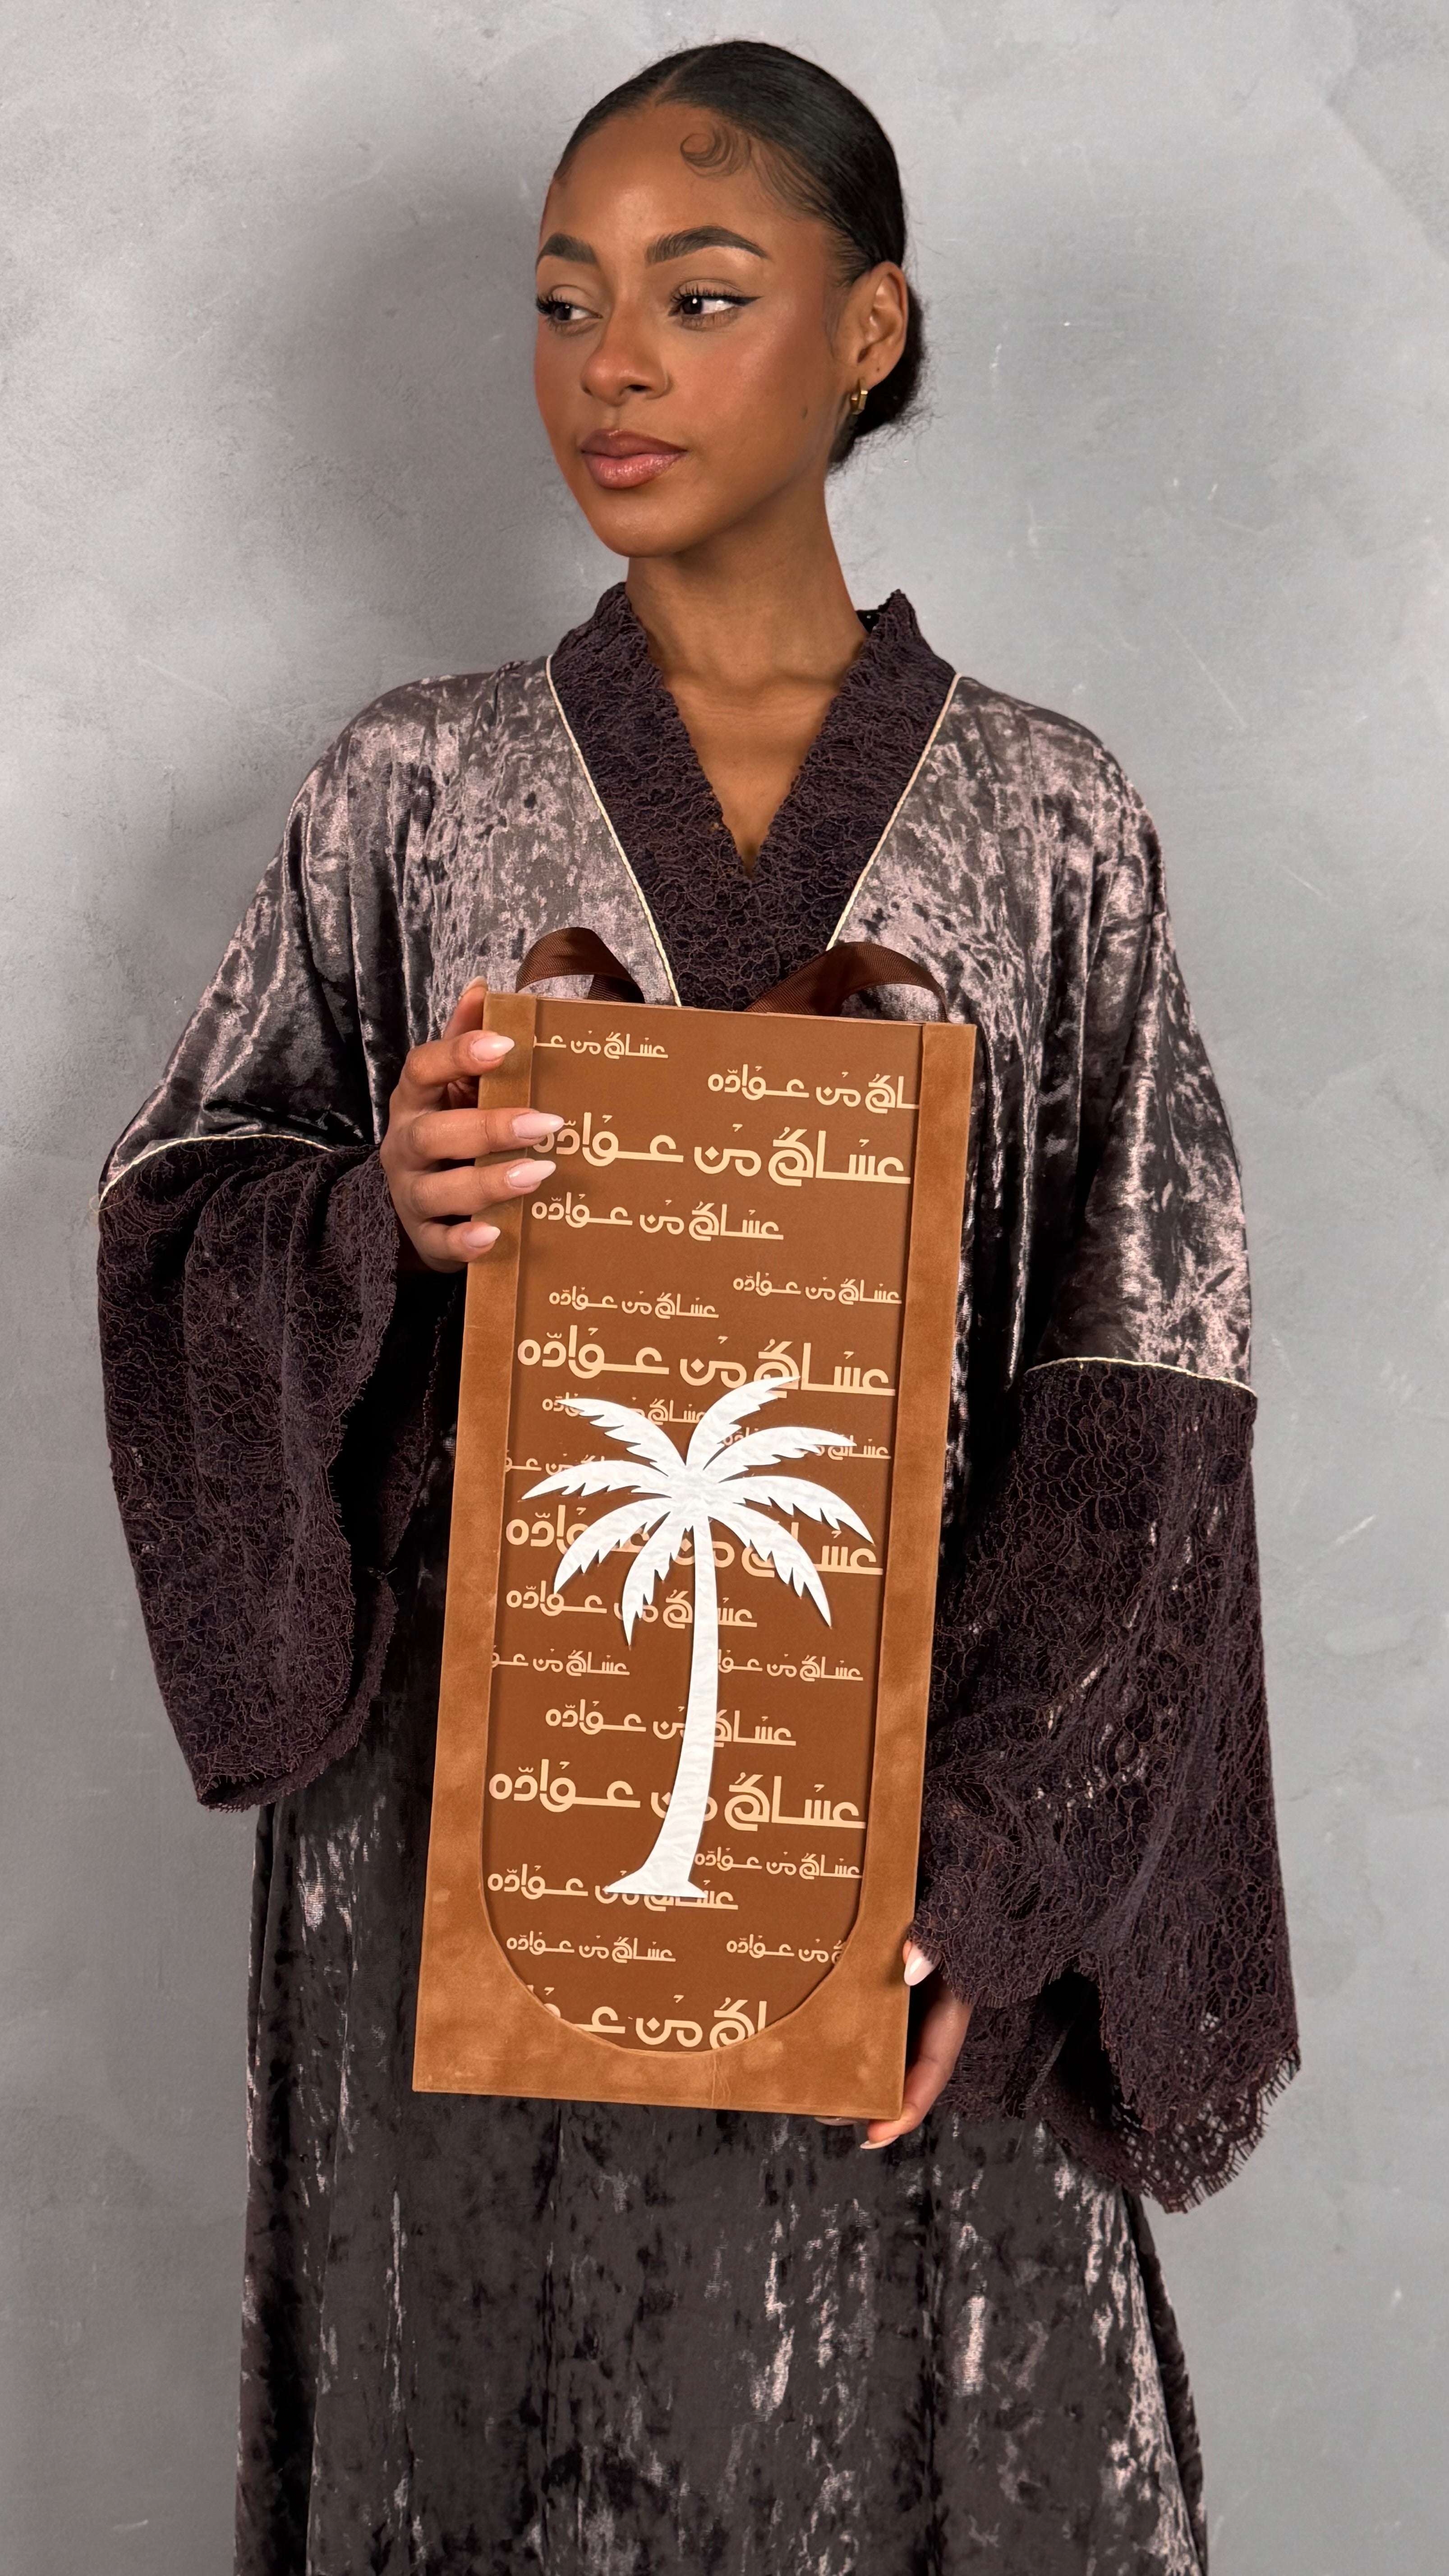 عساكم من
من عواده
عساكم من عواده
عساكم من عواده
عساكم من عواده
عساكم من عواده
عساكم من عواده
عساكم من عواده
عساكم
من
عساكم من عواده
عساكم من عواده
عساكم من
عساكم من
عساكم من عواده
عساكم من عواده
عساكم من عواده
عساكم من عواده
عساكم من عواده
من عواده
من